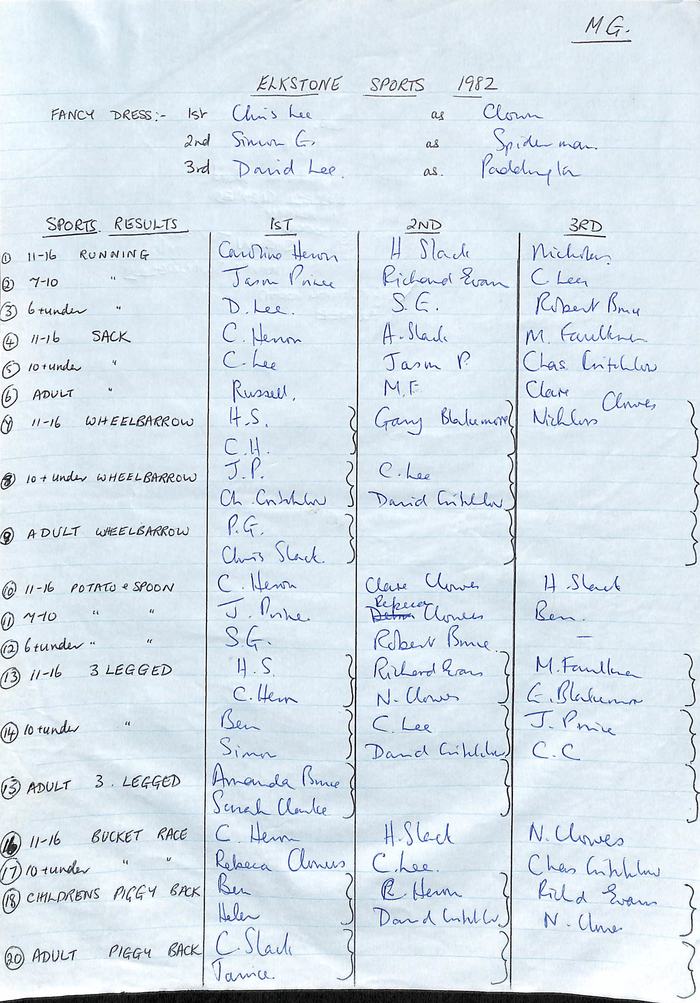 MG.
ELKSTONE SPORTS 1982
FANCY DRESS:- 1st Chris Lee as Clown
2nd Simon G. as Spiderman.
3rd David Lee. as. Paddington
SPORTS RESULTS 1ST 2ND 3RD
① 11-16 RUNNING Caroline Heron H Slack Nicholas.
② 7-10 " Jason Prince Richard Evans C. Lee
③ 6+under " D. Lee. S.G. Robert Bruce
④ 11-16 SACK C. Heron A. Slack M. Faulkner
⑤ 10+under " C. Lee Jason P. Chas Critchlow
⑥ ADULT " Russell. M.F Clare Clowes
⑦ 11-16 WHEELBARROW H.S. Gary Blakemore Nichlas
C.H.
⑧ 10+under WHEELBARROW J.P. C. Lee
Ch. Critchlow David Critchlow
⑨ ADULT WHEELBARROW P.G.
Chris Slack.
⑩ 11-16 POTATO & SPOON C. Heron Clare Clowes H. Slack
⑪ 7-10 " " J. Prince. Rebecca Clowes Ben.
⑫ 6+under " " S.G. Robert Bruce. —
⑬ 11-16 3 LEGGED H.S. Richard Evans M. Faulkner
C. Heron N. Clowes G. Blakemore
⑭ 10+under " Ben C. Lee J. Prince
Simon David Critchlow C.C
⑮ ADULT 3. LEGGED Amanda Bruce
Sarah Clarke
⑯ 11-16 BUCKET RACE C. Heron H. Slack N. Clowes
⑰ 10+under " " Rebeca Clowes C. Lee. Chas Critchlow
⑱ CHILDRENS PIGGY BACK Ben Heron Rich'd Evans
Helen David Critchlow N. Clowes
⑳ ADULT PIGGY BACK C. Slack
Janice.